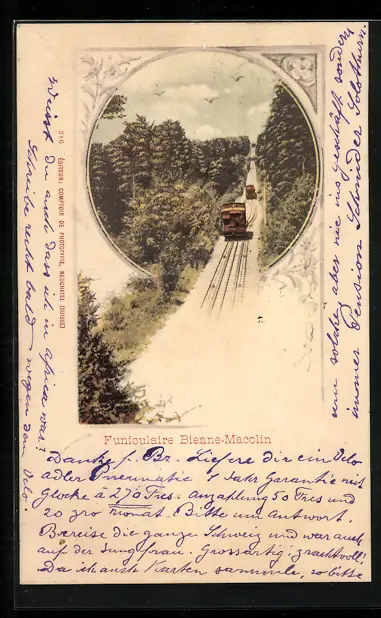 316 EDITEUR: COMPTOIR DE PHOTOTYPIE, NEUCHATEL (SUISSE)
Funiculaire Bienne-Macolin
Danke f. Br. Liefere dir ein Velo
adler Pneumatic 1 Jahr Garantie mit
Glocke à 270 Frcs. anzahlung 50 Frcs und
20 pro Monat. Bitte um Antwort.
Bereise die ganze Schweiz und war auch
auf der Jungfrau. Grossartig, prachtvoll!
Da ich auch Karten sammle, so bitte
um solche, aber nie ins Geschäft sondern
immer Pension Schnider Solothurn.
Weisst du auch dass ich in Africa war?
Schreibe recht bald wegen dem Velo.